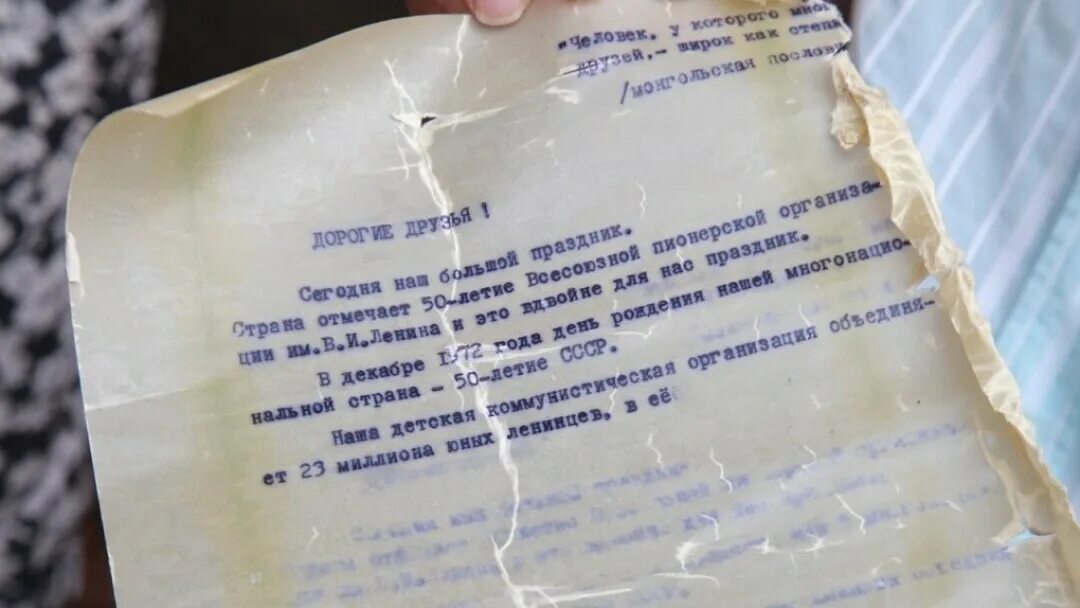 "Человек, у которого мно
друзей,- широк как степь
/монгольская послов
ДОРОГИЕ ДРУЗЬЯ !
Сегодня наш большой праздник.
Страна отмечает 50-летие Всесоюзной пионерской организа-
ции им.В.И.Ленина и это вдвойне для нас праздник.
В декабре 1972 года день рождения нашей многонацио-
нальной страна - 50-летие СССР.
Наша детская коммунистическая организация объединя-
ет 23 миллиона юных ленинцев, в её